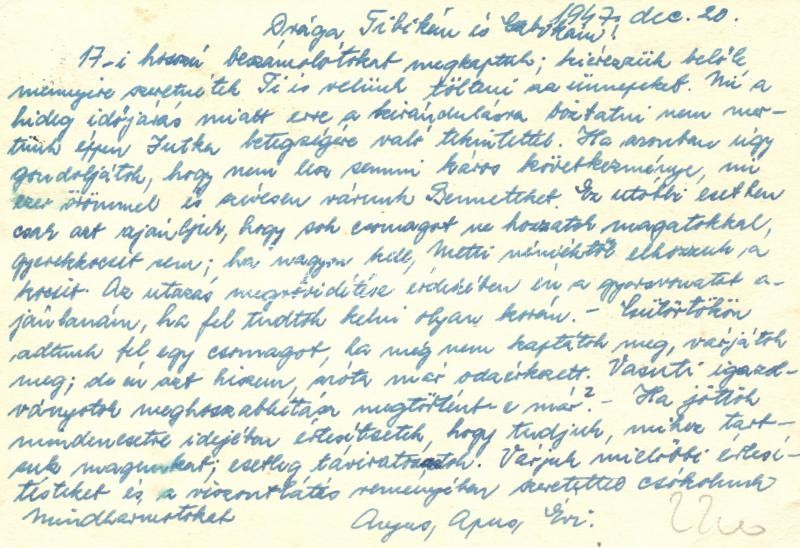 1947. dec. 20.
Drága Tibikém és Cabikám!
17-i hosszú beszámolótokat megkaptuk; kiérezzük belőle
mennyire szeretnétek Ti is velünk tölteni az ünnepeket. Mi a
hideg időjárás miatt erre a kirándulásra biztatni nem mer-
tünk éppen Jutka betegségére való tekintettel. Ha azonban úgy
gondoljátok, hogy nem lesz semmi káros következménye, mi
ezer örömmel és szívesen várunk Benneteket. Ez utóbbi esetben
csak azt ajánljuk, hogy sok csomagot ne hozzatok magatokkal,
gyerekkocsit sem; ha nagyon kell, elhozzuk a
kocsit. Az utazás megrövidítése érdekében én a gyorsvonatot a-
jánlanám, ha fel tudtok kelni olyan korán. – Csütörtökön
adtunk fel egy csomagot, ha még nem kaptátok meg, várjátok
meg; de én azt hiszem, azóta már odaérkezett. Vasuti igazol-
ványotok meghosszabbítása megtörtént-e már? – Ha jöttök
mindenesetre idejében értesítsetek, hogy tudjuk, mihez tart-
suk magunkat; esetleg táviratozzatok. Várjuk mielőbbi értesí-
téstiket és a viszontlátás reményében szeretettel csókolunk
Mindhármotokat
Anyus, Apus, Évi.